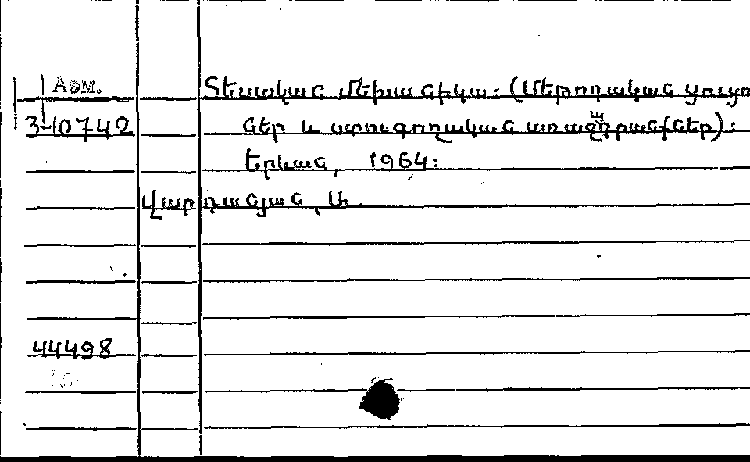 Арм.
Տեսական մեխանիկա: (Մեթոդական ցուցո
3-10742
ներ և ստուգողական առաջադրանքներ):
Երևան, 1964:
Վարդանյան, Ա.
44498